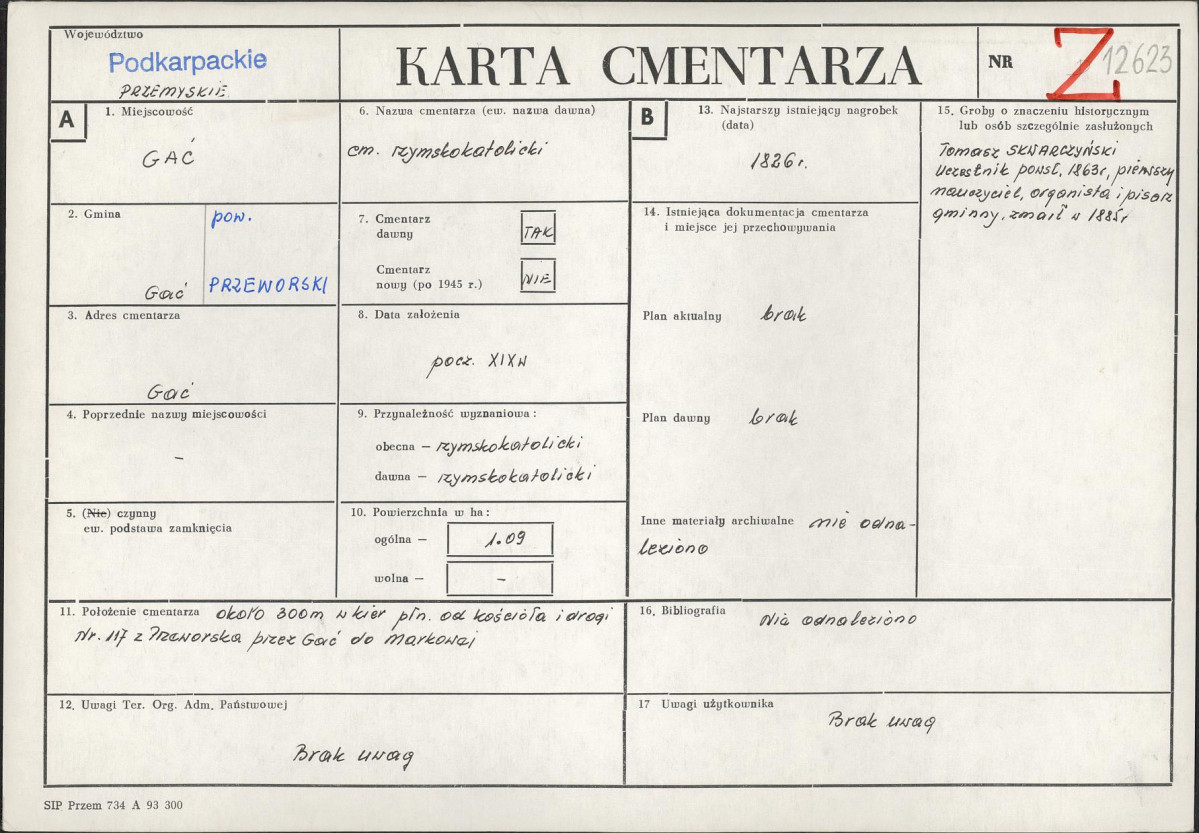 Województwo
Podkarpackie
PRZEMYSKIE
KARTA CMENTARZA
NR
Z 12623
A
1. Miejscowość
GAĆ
2. Gmina
Gać
pow.
PRZEWORSKI
3. Adres cmentarza
Gać
4. Poprzednie nazwy miejscowości
–
5. (Nie) czynny
ew. podstawa zamknięcia
6. Nazwa cmentarza (ew. nazwa dawna)
cm. rzymskokatolicki
7. Cmentarz
dawny
TAK
Cmentarz
nowy (po 1945 r.)
NIE
8. Data założenia
pocz. XIXw
9. Przynależność wyznaniowa :
obecna – rzymskokatolicki
dawna – rzymskokatolicki
10. Powierzchnia w ha :
ogólna – 1.09
wolna – –
11. Położenie cmentarza około 300m w kier płn. od kościoła i drogi
Nr. 117 z Przeworska przez Gać do Markowej
12. Uwagi Ter. Org. Adm. Państwowej
Brak uwag
B
13. Najstarszy istniejący nagrobek
(data)
1826r.
14. Istniejąca dokumentacja cmentarza
i miejsce jej przechowywania
Plan aktualny brak
Plan dawny brak
Inne materiały archiwalne nie odna-
leziono
15. Groby o znaczeniu historycznym
lub osób szczególnie zasłużonych
Tomasz SKWARCZYŃSKI
Uczestnik powst. 1863r, pierwszy
nauczyciel, organista i pisarz
gminny, zmarł w 1885r
16. Bibliografia
Nie odnaleziono
17 Uwagi użytkownika
Brak uwag
SIP Przem 734 A 93 300